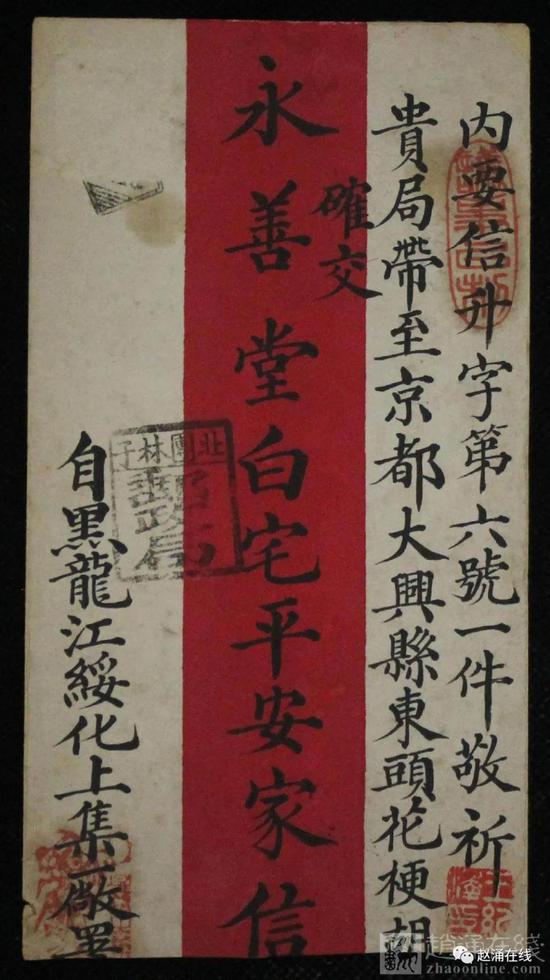 内要信升字第六號一件敬祈
貴局帶至京都大興縣東頭花梗胡
確交
永善堂白宅平安家信
北團林子
郵政局
自黑龍江綏化上集厰
赵涌在线
zhaoonline.com
赵涌在线